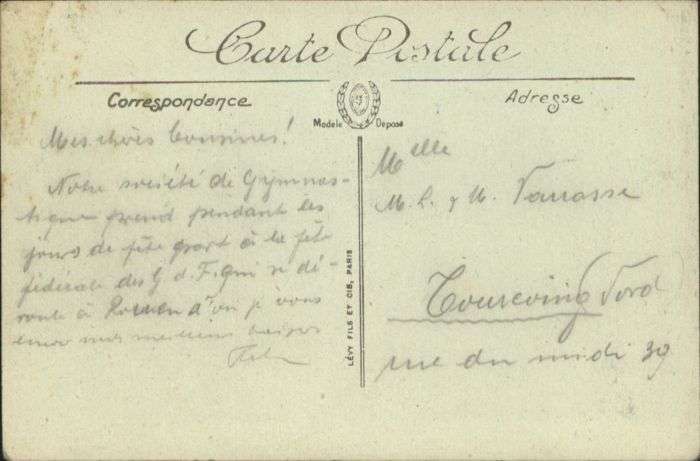 Carte Postale
Correspondance
Modèle Déposé
Adresse
Mes chères Cousines!
Notre société de Gymnas-
tique prend pendant les
jours de fête part à la fête
fédérale des G d. F. qui se dé-
roule à Rouen d'où je vous
envoie mes meilleurs baisers
LÉVY FILS ET CIE, PARIS
Melle
M. L. & M. Varrasse
Tourcoing Nord
rue du midi 39